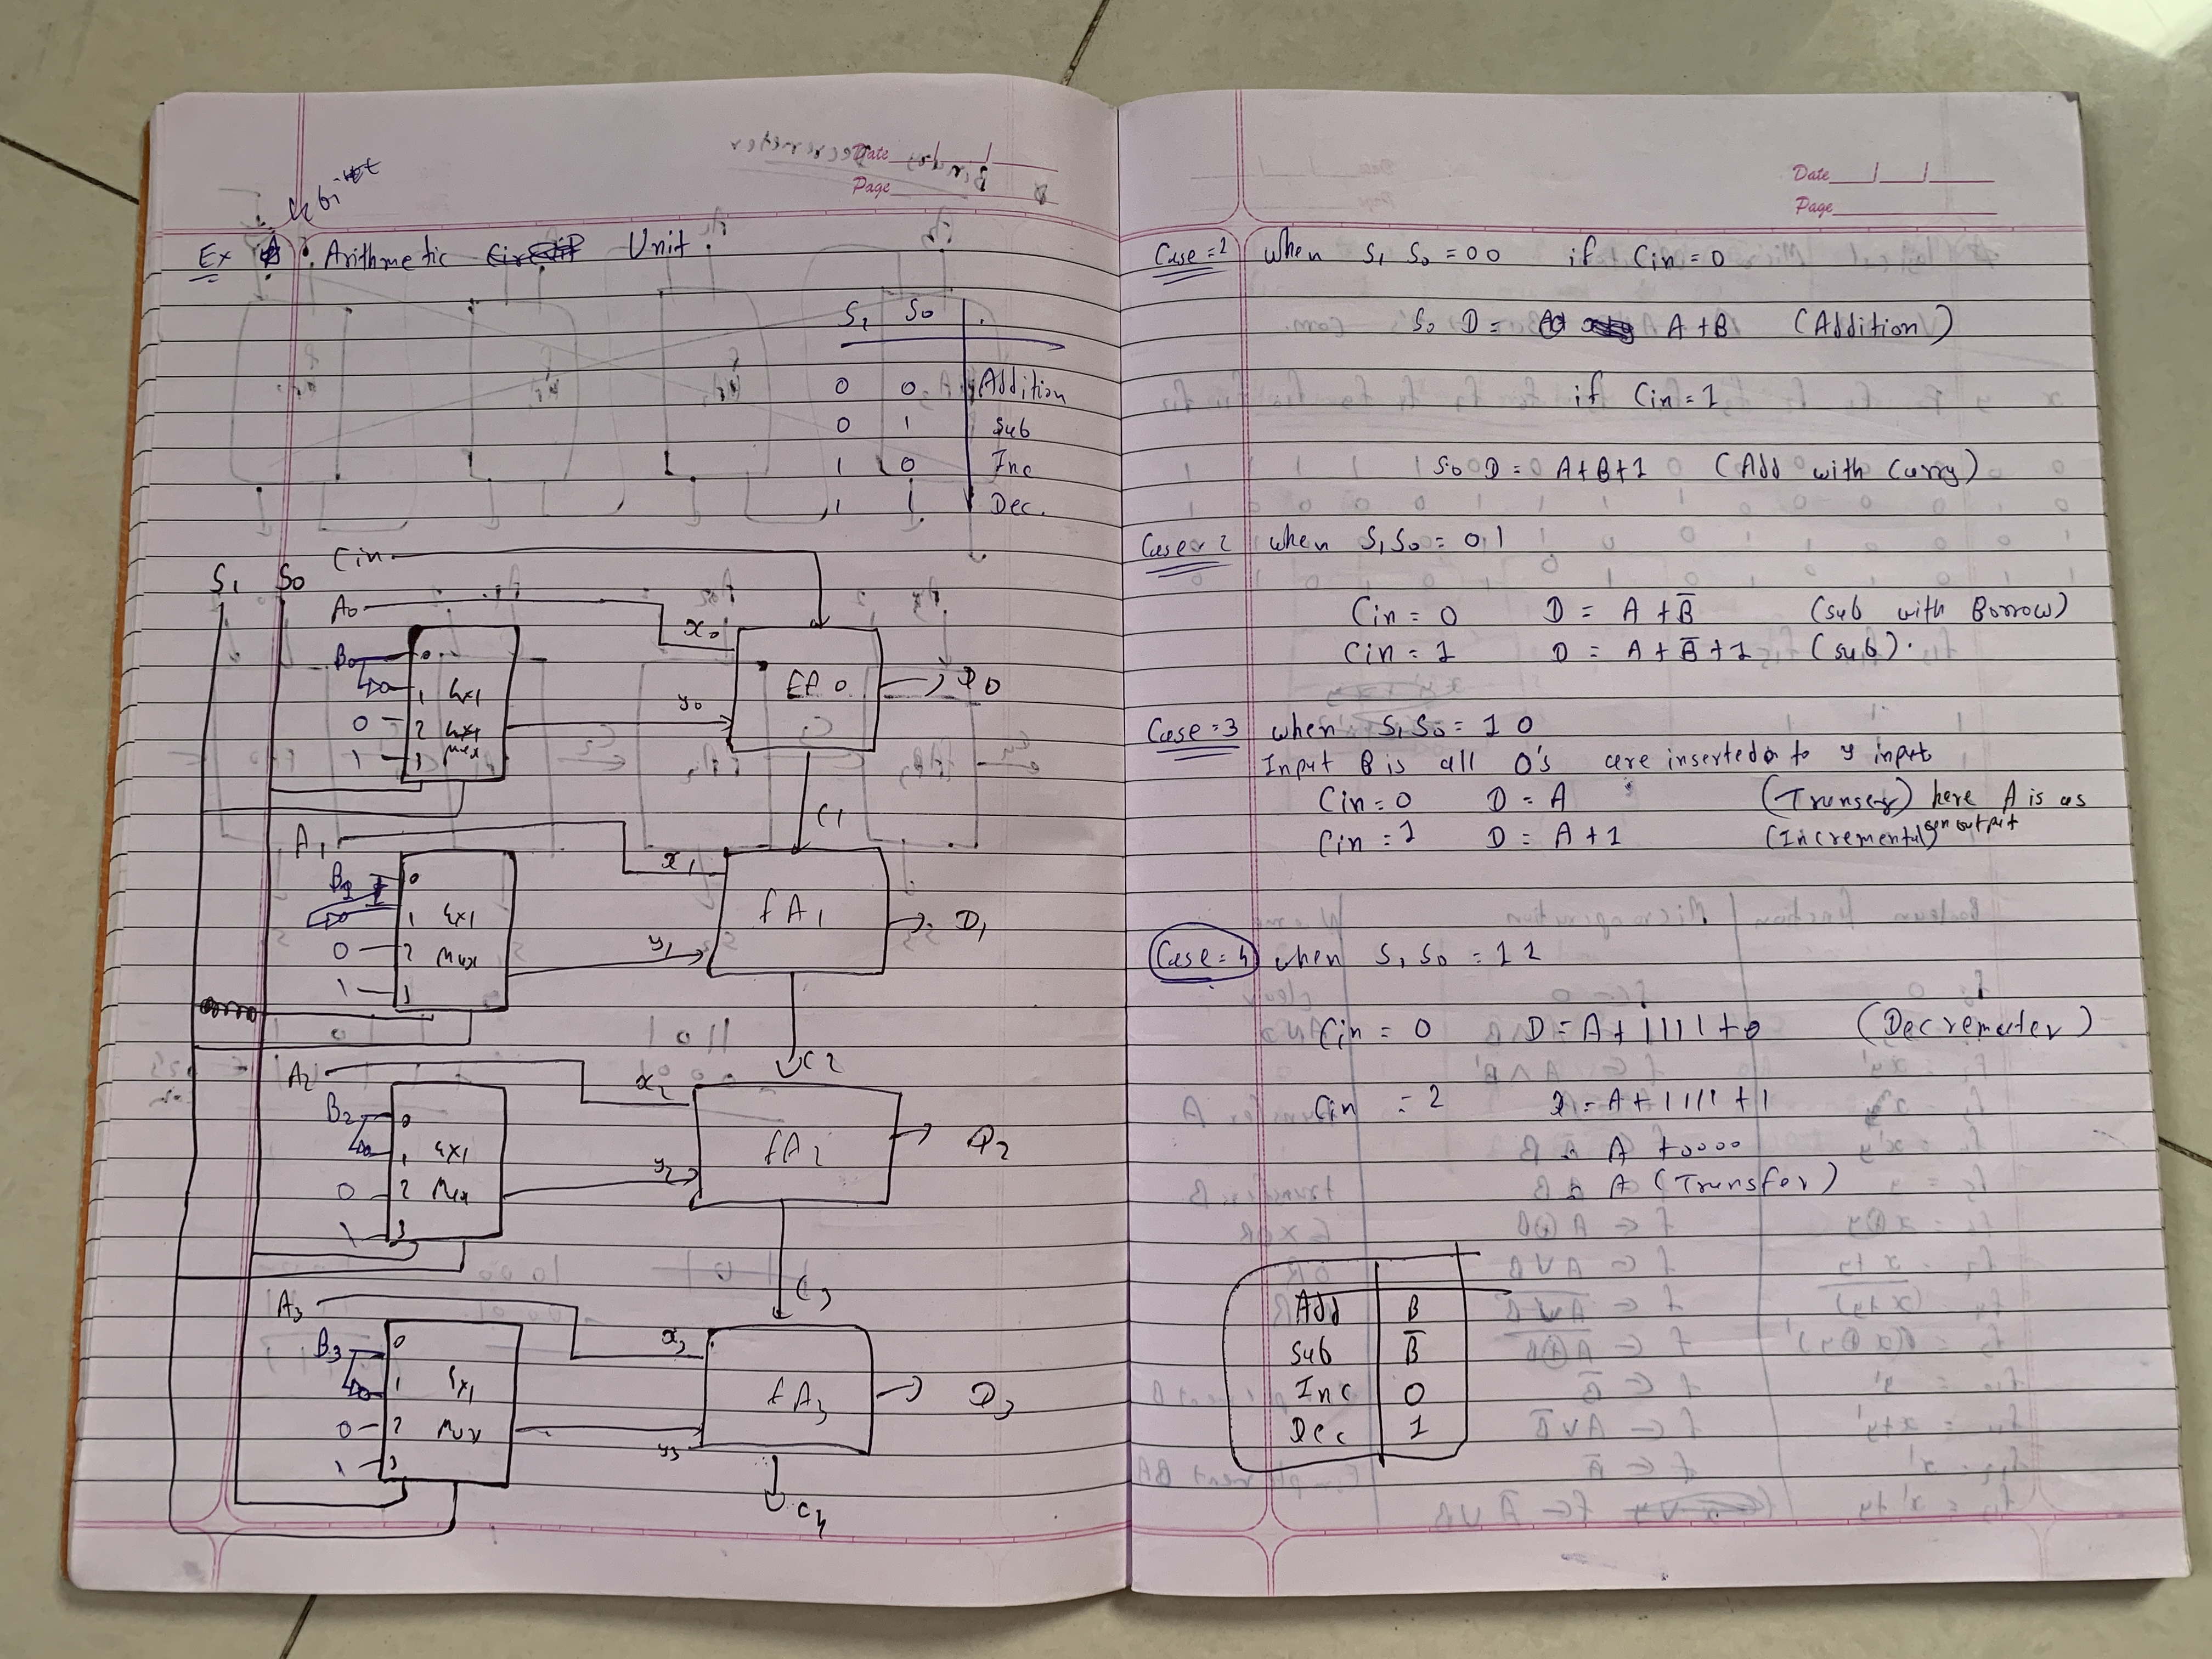 Date
Page
4 bit
Ex . Arithmetic Unit.
S1 S0
0 0 Addition
0 1 Sub
1 0 Inc
1 1 Dec.
Cin
S1 S0
A0 x0
B0 0
1 4x1
0 2 4x1
1 3 Mux
y0
FA0
D0
C1
A1 x1
B1 0
1 4x1
0 2 Mux
1 3
y1
FA1
D1
C2
A2 x2
B2 0
1 4x1
0 2 Mux
1 3
y2
FA2
D2
C3
A3 x3
B3 0
1 4x1
0 2 Mux
1 3
y3
FA3
D3
C4
Date
Page
Case=1 When S1 S0 = 00 if Cin=0
So D = A+B (Addition)
if Cin=1
So D = A+B+1 (Add with Carry)
Case=2 when S1S0 = 01
Cin = 0 D = A + B̅ (sub with Borrow)
Cin = 1 D = A+B̅+1 (sub).
Case=3 when S1S0 = 10
Input B is all 0's are inserted to y input
Cin=0 D = A (Transfer) here A is as
Cin=1 D = A+1 (Incremental) output
Case=4 when S1 S0 = 11
Cin = 0 D = A+1111+0 (Decrementer)
Cin = 1 D = A+1111+1
= A +0000
= A (Transfer)
Add B
Sub B̅
Inc 0
Dec 1